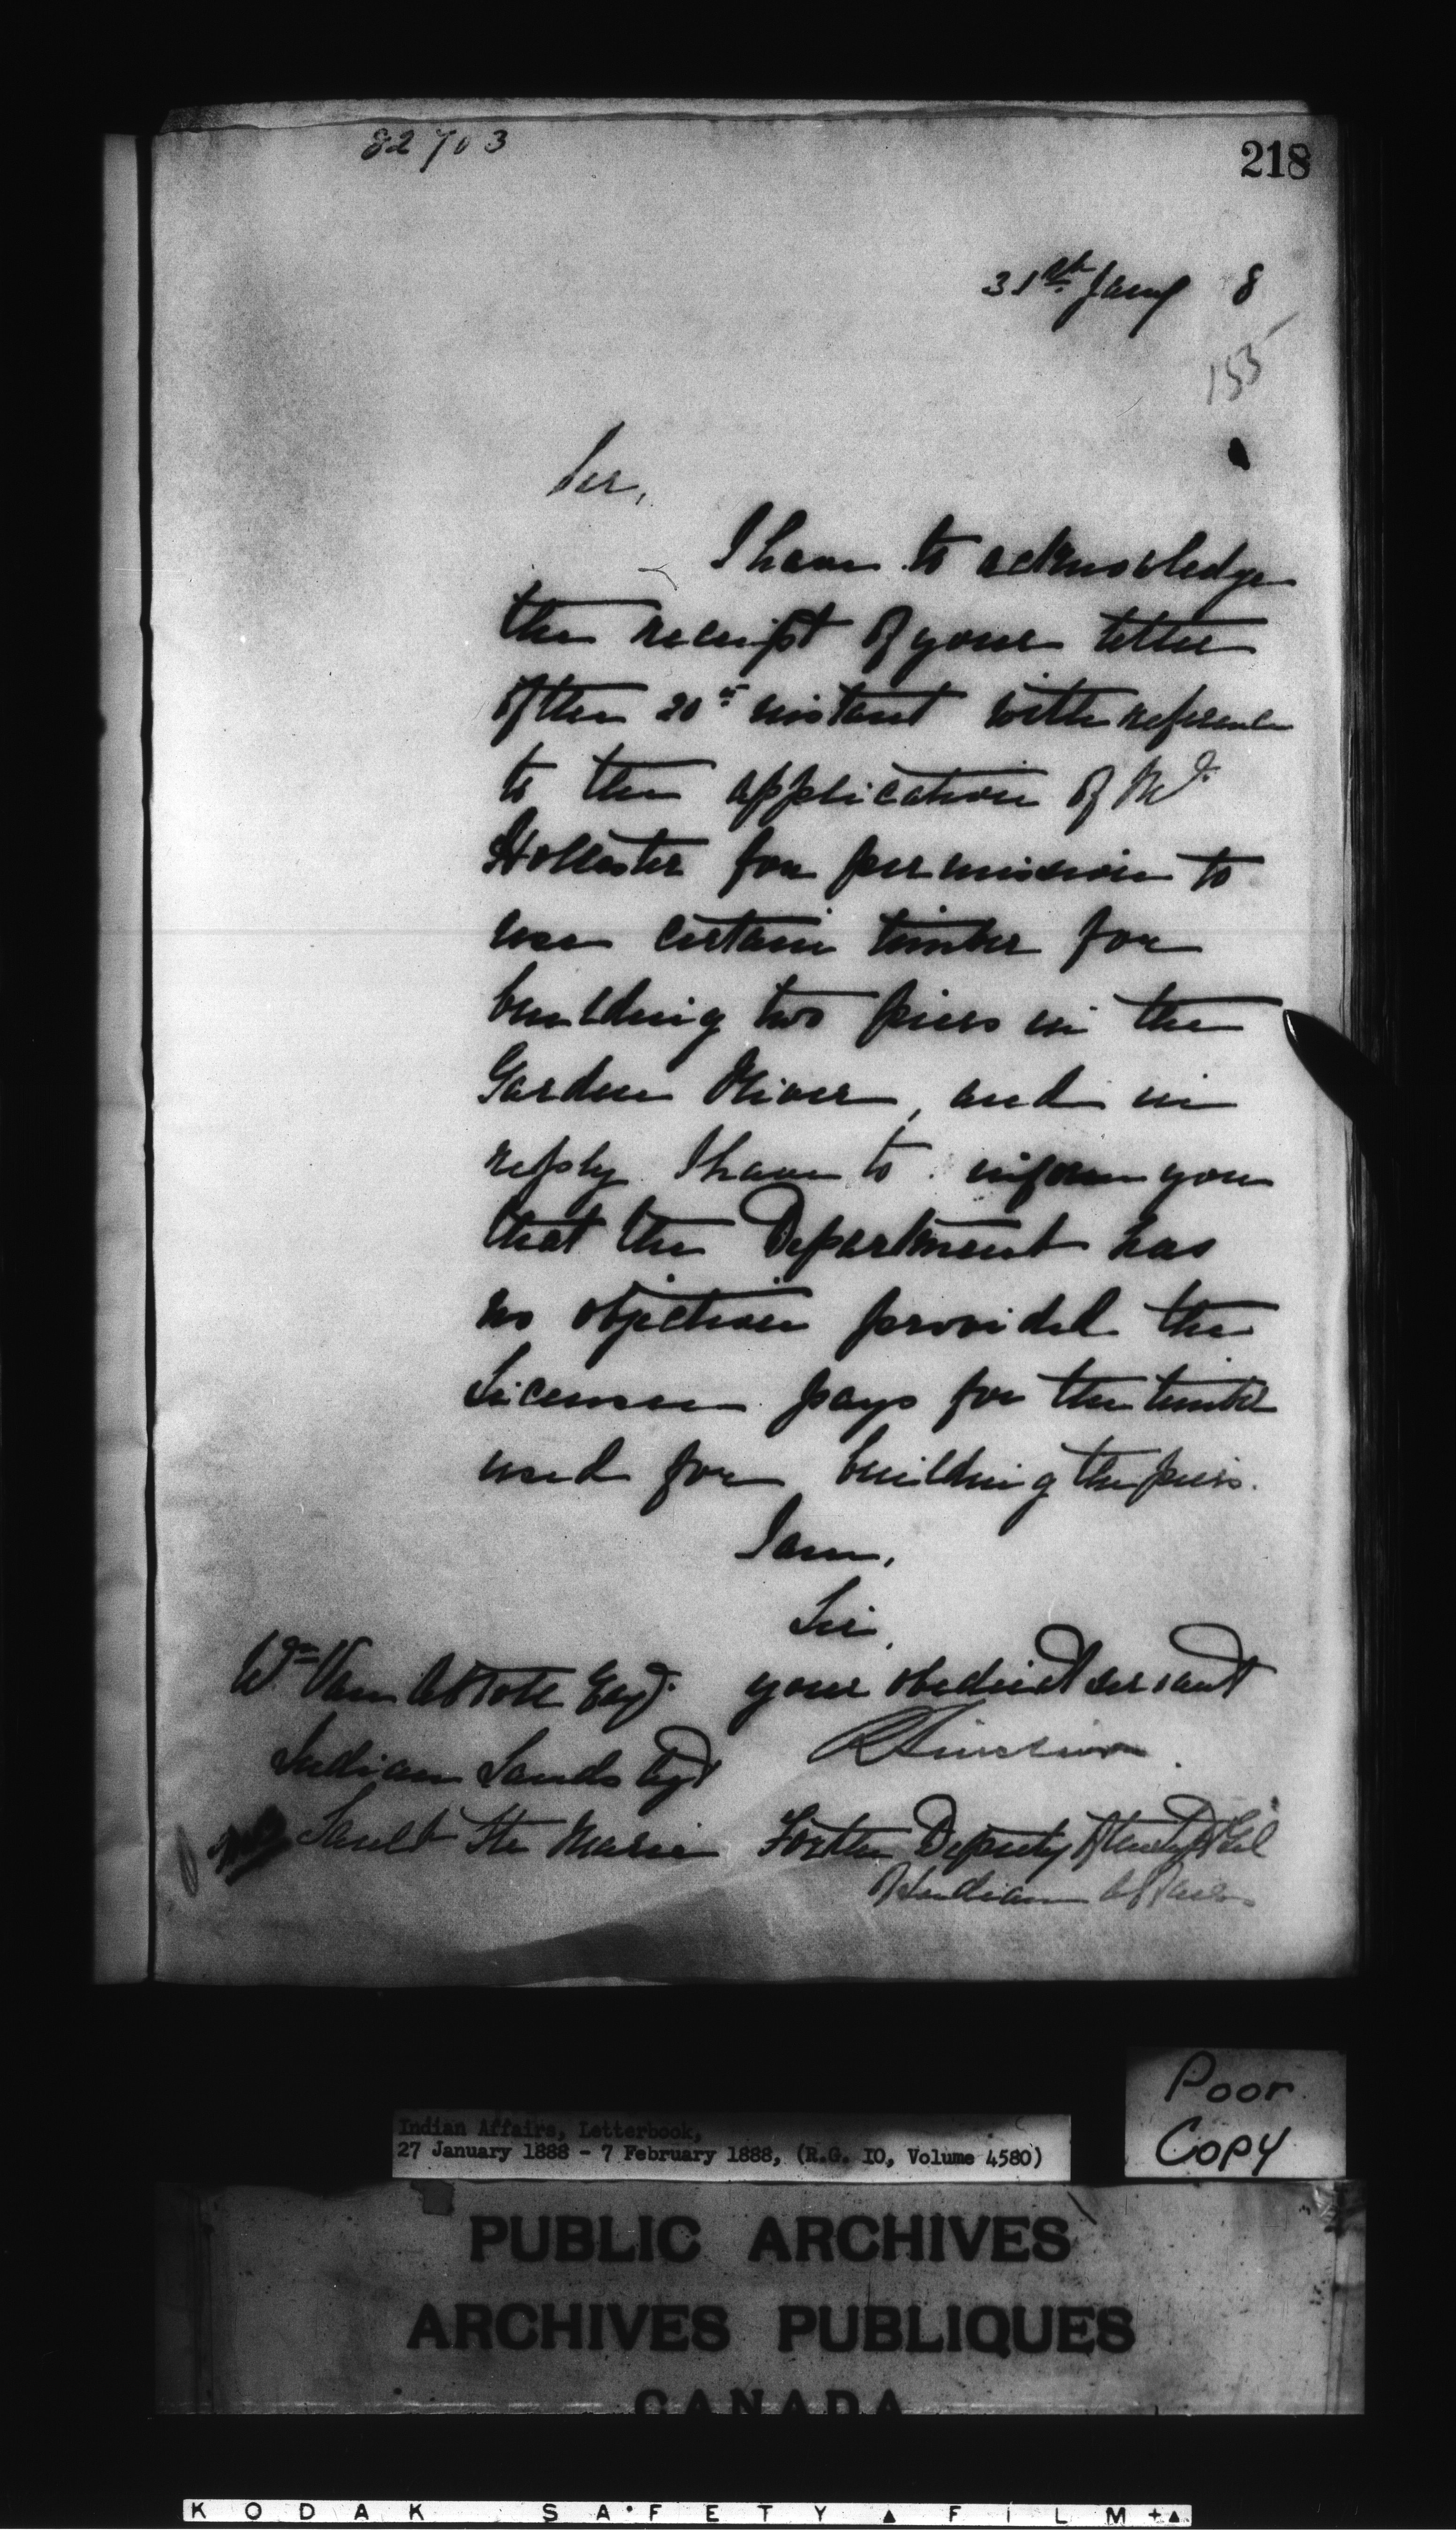 82703
218
31st Jany 8
155
Sir,
I have to acknowledge
the receipt of your letter
of the 20th instant with reference
to the application of Mr
Hollister for permission to
use certain timber for
building two piers in the
Garden River, and in
reply I have to inform you
that the Department has
no objection provided the
Licensee pays for the timber
used for building the piers.
I am,
Sir,
your obedient servant
R Sinclair
For the Deputy of the Supt Genl
of Indian Affairs
Wm Van Abbott Esqr
Indian Lands Agt
Sault Ste Marie
Poor
Copy
Indian Affairs, Letterbook,
27 January 1888 - 7 February 1888, (R.G. IO, Volume 4580)
PUBLIC ARCHIVES
ARCHIVES PUBLIQUES
CANADA
KODAK SAFETY FILM